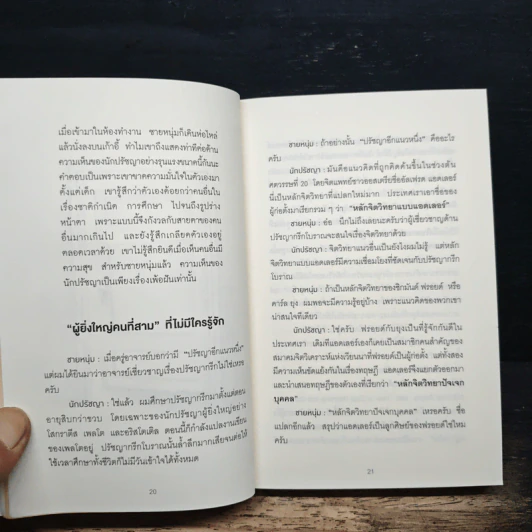 เมื่อเข้ามาในห้องทำงาน ชายหนุ่มก็เดินห่อไหล่
แล้วนั่งลงบนเก้าอี้ ทำไมเขาถึงแสดงท่าทีต่อต้าน
ความเห็นของนักปรัชญาอย่างรุนแรงขนาดนี้กันนะ
คำตอบก็เป็นเพราะเขาขาดความมั่นใจในตัวเองมา
ตั้งแต่เด็ก เขารู้สึกว่าตัวเองด้อยกว่าคนอื่นใน
เรื่องชาติกำเนิด การศึกษา ไปจนถึงรูปร่าง
หน้าตา เพราะแบบนี้จึงกังวลกับสายตาของคน
อื่นมากเกินไป และยังรู้สึกเกลียดตัวเองอยู่
ตลอดเวลาด้วย เขาไม่รู้สึกยินดีเมื่อเห็นคนอื่นมี
ความสุข สำหรับชายหนุ่มแล้ว ความเห็นของ
นักปรัชญาเป็นเพียงเรื่องเพ้อฝันเท่านั้น
"ผู้ยิ่งใหญ่คนที่สาม" ที่ไม่มีใครรู้จัก
ชายหนุ่ม : เมื่อครู่อาจารย์บอกว่ามี "ปรัชญาอีกแนวหนึ่ง"
แต่ผมได้ยินมาว่าอาจารย์เชี่ยวชาญเรื่องปรัชญากรีกไม่ใช่เหรอ
ครับ
นักปรัชญา : ใช่แล้ว ผมศึกษาปรัชญากรีกมาตั้งแต่ตอน
อายุสิบกว่าขวบ โดยเฉพาะของนักปรัชญาผู้ยิ่งใหญ่อย่าง
โสกราตีส เพลโต และอริสโตเติล ตอนนี้ก็กำลังแปลงานเขียน
ของเพลโตอยู่ ปรัชญากรีกโบราณนั้นล้ำลึกมากเสียจนต่อให้
ใช้เวลาศึกษาทั้งชีวิตก็ไม่มีวันเข้าใจได้ทั้งหมด
20
ชายหนุ่ม : ถ้าอย่างนั้น "ปรัชญาอีกแนวหนึ่ง" คืออะไร
ครับ
นักปรัชญา : มันคือแนวคิดที่ถูกคิดค้นขึ้นในช่วงต้น
ศตวรรษที่ 20 โดยจิตแพทย์ชาวออสเตรียชื่ออัลเฟรด แอดเลอร์
นี่เป็นหลักจิตวิทยาที่แปลกใหม่มาก ประเทศเราเอาชื่อของ
ผู้ก่อตั้งมาเรียกรวม ๆ ว่า "หลักจิตวิทยาแบบแอดเลอร์"
ชายหนุ่ม : อ๋อ นึกไม่ถึงเลยนะครับว่าผู้เชี่ยวชาญด้าน
ปรัชญากรีกโบราณจะสนใจเรื่องจิตวิทยาด้วย
นักปรัชญา : จิตวิทยาแนวอื่นเป็นยังไงผมไม่รู้ แต่หลัก
จิตวิทยาแบบแอดเลอร์มีความเชื่อมโยงที่ชัดเจนกับปรัชญากรีก
โบราณ
ชายหนุ่ม : ถ้าเป็นหลักจิตวิทยาของซิกมันด์ ฟรอยด์ หรือ
คาร์ล ยุง ผมพอจะมีความรู้อยู่บ้าง เพราะแนวคิดของพวกเขา
น่าสนใจทีเดียว
นักปรัชญา : ใช่ครับ ฟรอยด์กับยุงเป็นที่รู้จักกันดีใน
ประเทศเรา เดิมทีแอดเลอร์เคยเป็นสมาชิกคนสำคัญของ
สมาคมจิตวิเคราะห์แห่งเวียนนาที่ฟรอยด์เป็นผู้ก่อตั้ง แต่ทั้งสอง
มีความเห็นขัดแย้งกันในเรื่องทฤษฎี แอดเลอร์จึงแยกตัวออกมา
และนำเสนอทฤษฎีของตัวเองที่เรียกว่า "หลักจิตวิทยาปัจเจก
บุคคล"
ชายหนุ่ม : "หลักจิตวิทยาปัจเจกบุคคล" เหรอครับ ชื่อ
แปลกอีกแล้ว สรุปว่าแอดเลอร์เป็นลูกศิษย์ของฟรอยด์ใช่ไหม
ครับ
21